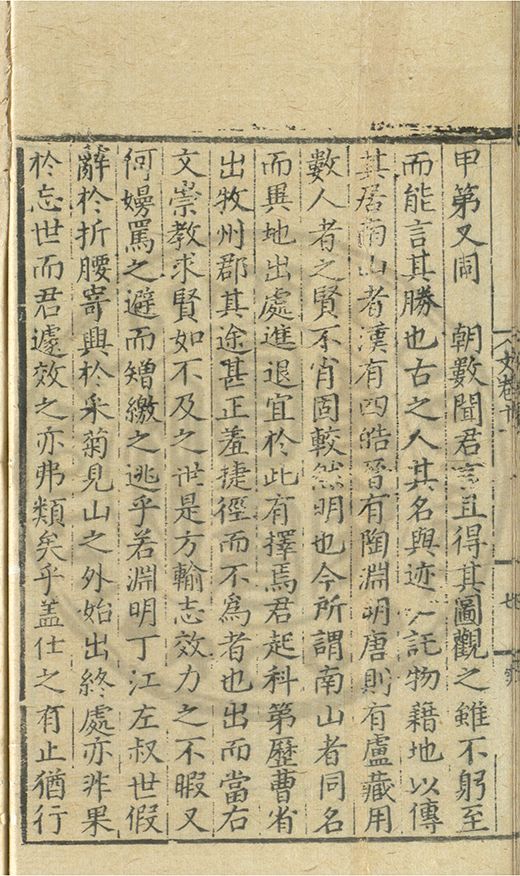 甲第又同　朝數聞君言且得其圖觀之雖不躬至
而能言其勝也古之人其名與迹　託物藉地以傳
其居南山者漢有四皓晉有陶淵明唐則有盧藏用
數人者之賢不肖固較然明也今所謂南山者同名
而異地出處進退宜於此有擇焉君起科第歷曹省
出牧州郡其途甚正羞捷徑而不爲者也出而當右
文崇教求賢如不及之世是方輸志效力之不暇又
何嫚罵之避而矰繳之逃乎若淵明丁江左叔世假
辭於折腰寄興於采菊見山之外始出終處亦非果
於忘世而君遽效之亦弗類矣乎盖仕之有止猶行
文卷十
七